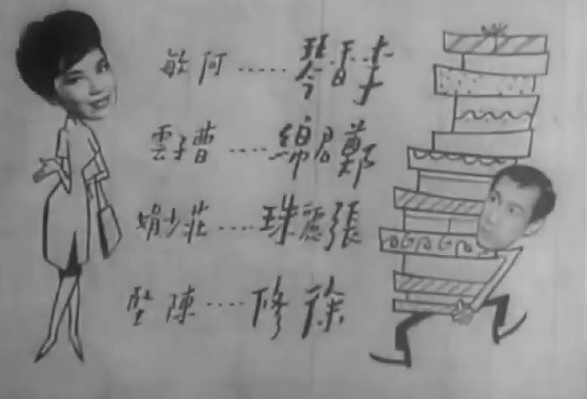 李香琴.....何敏
鄭君綿.....曹子雲
張麗珠.....莊少娟
徐修.....陳堅